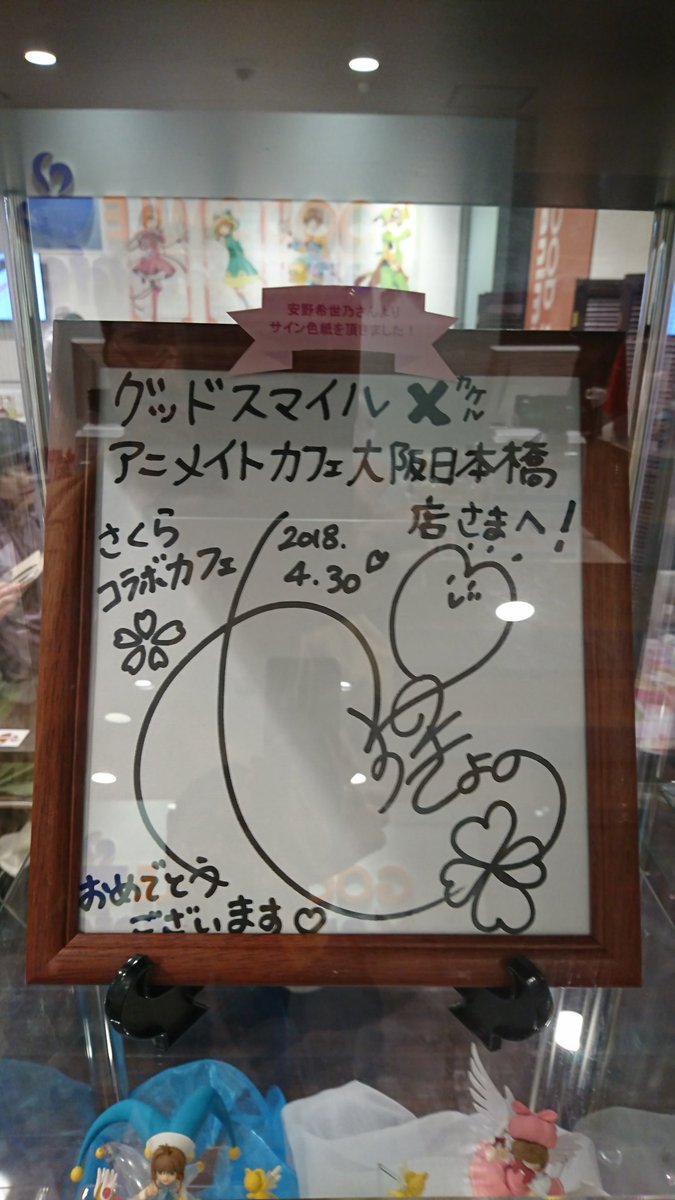 安野希世乃さんより
サイン色紙を頂きました！
グッドスマイル×カケル
アニメイトカフェ大阪日本橋
店さまへ！
さくら
コラボカフェ
2018.
4.30
あんの
きよの
おめでとう
ございます